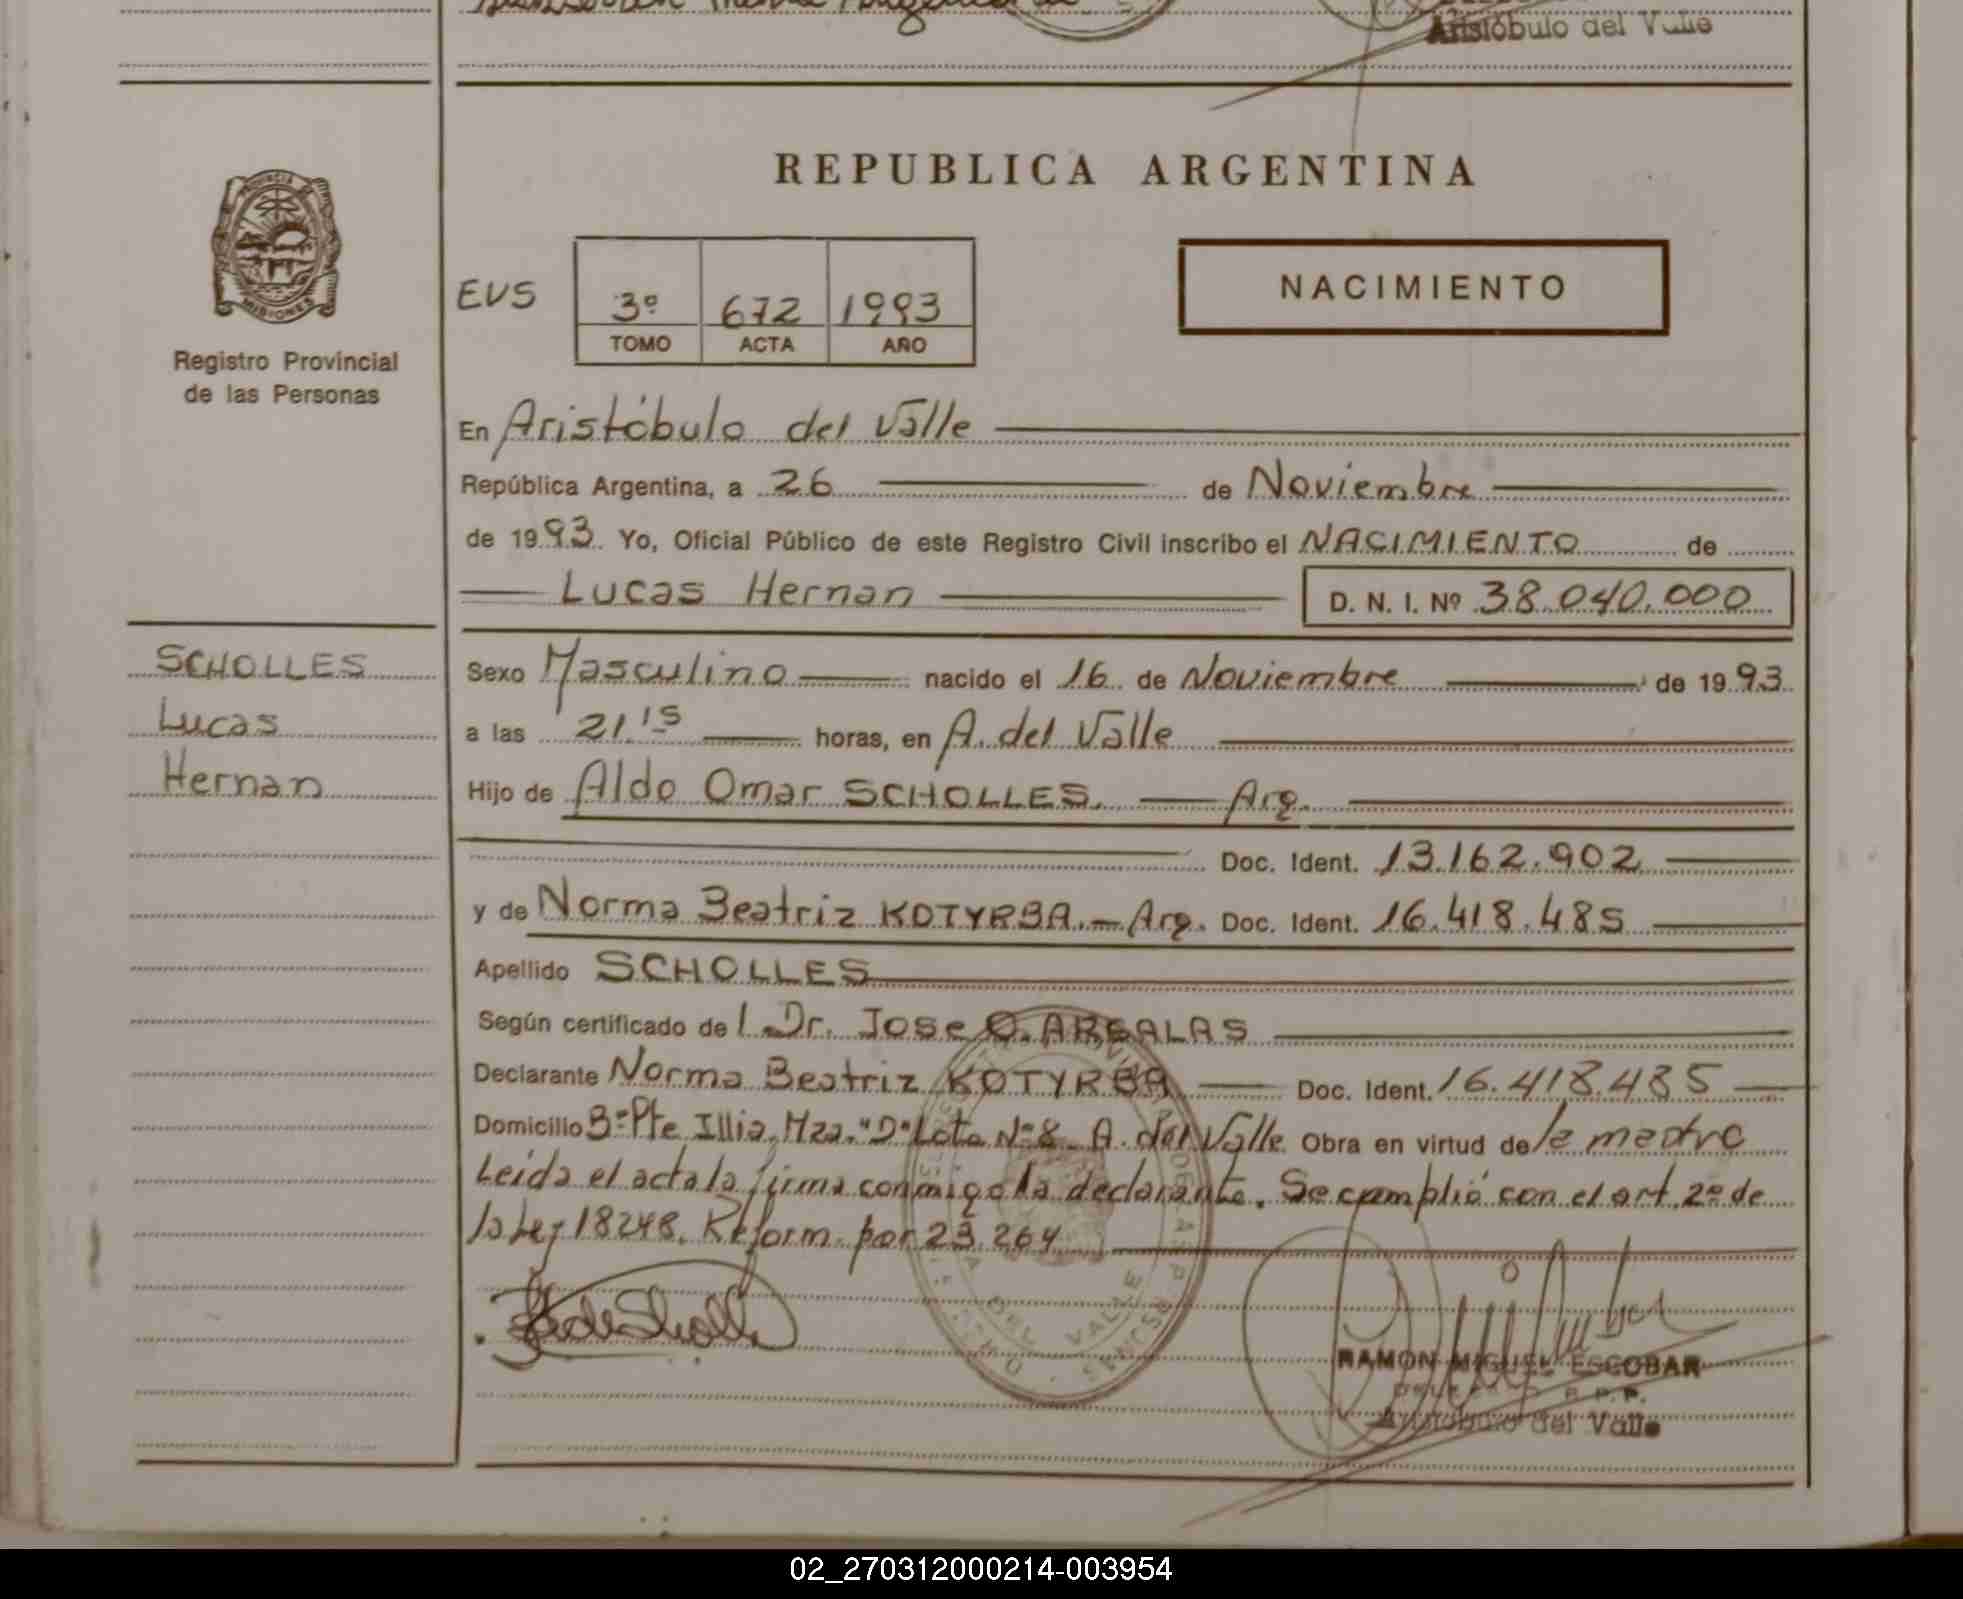 Aristóbulo del Valle
REPUBLICA ARGENTINA
PROVINCIA DE
MISIONES
Registro Provincial
de las Personas
EVS
3º 672 1993
TOMO ACTA AÑO
NACIMIENTO
En Aristóbulo del Valle
República Argentina, a 26 de Noviembre
de 1993. Yo, Oficial Público de este Registro Civil inscribo el NACIMIENTO de
Lucas Hernan D. N. I. Nº 38.040.000
SCHOLLES
Lucas
Hernan
Sexo Masculino nacido el 16 de Noviembre de 1993
a las 21.15 horas, en A. del Valle
Hijo de Aldo Omar SCHOLLES. Arg.
Doc. Ident. 13.162.902
y de Norma Beatriz KOTYRBA.- Arg. Doc. Ident. 16.418.485
Apellido SCHOLLES
Según certificado de l Dr. Jose O. ARGALAS
Declarante Norma Beatriz KOTYRBA Doc. Ident. 16.418.485
Domicilio Bº Pte Illia, Mza. "D" Lote Nº 8 A. del Valle. Obra en virtud de
Leida el acta la firma conmigo la declarante. Se cumplió con el art. 2º de
la Ley 18248. Reform. por 23.264
DEL VALLE
RAMON MIGUEL ESCOBAR
R.P.P.
Aristóbulo del Valle
02_270312000214-003954